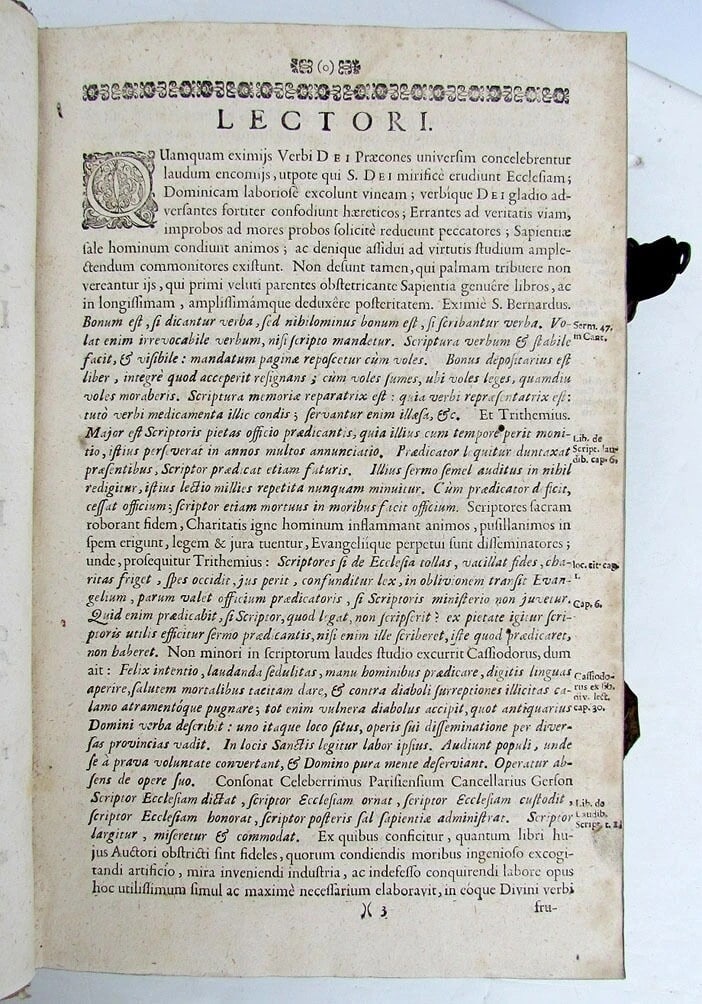 (0)
LECTORI.
QUamquam eximijs Verbi DEI Præcones universim concelebrentur
laudum encomijs, utpote qui S. DEI mirificè erudiunt Ecclesiam;
Dominicam laboriosè excolunt vineam; verbique DEI gladio ad-
versantes fortiter confodiunt hæreticos; Errantes ad veritatis viam,
improbos ad mores probos solicitè reducunt peccatores; Sapientiæ
sale hominum condiunt animos; ac denique assidui ad virtutis studium ample-
ctendum commonitores existunt. Non desunt tamen, qui palmam tribuere non
vereantur ijs, qui primi veluti parentes obstetricante Sapientia genuêre libros, ac
in longissimam, amplissimámque deduxêre posteritatem. Eximiè S. Bernardus.
Bonum est, si dicantur verba, sed nihilominus bonum est, si scribantur verba. Vo- Serm. 47.
lat enim irrevocabile verbum, nisi scripto mandetur. Scriptura verbum & stabile in Cant.
facit, & visibile: mandatum paginæ reposcetur cùm voles. Bonus depositarius est
liber, integrè quod acceperit resignans; cùm voles sumes, ubi voles leges, quamdiu
voles moraberis. Scriptura memoriæ reparatrix est: quia verbi repræsentatrix est:
tutò verbi medicamenta illic condis; servantur enim illæsa, &c. Et Trithemius.
Major est Scriptoris pietas officio prædicantis, quia illius cum tempore perit moni-
tio, istius perseverat in annos multos annunciatio. Prædicator loquitur duntaxat
præsentibus, Scriptor prædicat etiam futuris. Illius sermo semel auditus in nihil
redigitur, istius lectio millies repetita nunquam minuitur. Cùm prædicator deficit,
cessat officium; scriptor etiam mortuus in moribus facit officium. Scriptores sacram
Lib. de
Script. lau-
dib. cap. 6.
roborant fidem, Charitatis igne hominum inflammant animos, pusillanimos in
spem erigunt, legem & jura tuentur, Evangeliique perpetui sunt disseminatores;
unde, prosequitur Trithemius: Scriptores si de Ecclesia tollas, vacillat fides, cha- loc. cit. cap.
ritas friget, spes occidit, jus perit, confunditur lex, in oblivionem transit Evan- 1.
gelium, parum valet officium prædicatoris, si Scriptoris ministerio non juvetur. Cap. 6.
Quid enim prædicabit, si Scriptor, quod legat, non scripserit? ex pietate igitur scri-
ptoris utilis efficitur sermo prædicantis, nisi enim ille scriberet, iste quod prædicaret,
non haberet. Non minori in scriptorum laudes studio excurrit Cassiodorus, dum
ait: Felix intentio, laudanda sedulitas, manu hominibus prædicare, digitis linguas
aperire, salutem mortalibus tacitam dare, & contra diaboli surreptiones illicitas ca-
lamo atramentóque pugnare; tot enim vulnera diabolus accipit, quot antiquarius
Cassiodo-
rus ex lib.
div. lect.
cap. 30.
Domini verba describit: uno itaque loco situs, operis sui disseminatione per diver-
sas provincias vadit. In locis Sanctis legitur labor ipsius. Audiunt populi, unde
se à prava voluntate convertant, & Domino pura mente deserviant. Operatur ab-
sens de opere suo. Consonat Celeberrimus Parisiensium Cancellarius Gerson
Scriptor Ecclesiam dictat, scriptor Ecclesiam ornat, scriptor Ecclesiam custodit,
scriptor Ecclesiam honorat, scriptor posteris sal sapientiæ administrat. Scriptor
Lib. de
Laudib.
Script.
largitur, miseretur & commodat. Ex quibus conficitur, quantum libri hu-
jus Auctori obstricti sint fideles, quorum condiendis moribus ingenioso excogi-
tandi artificio, mira inveniendi industria, ac indefesso conquirendi labore opus
hoc utilissimum simul ac maximè necessarium elaboravit, in eoque Divini verbi
)( 3
fru-